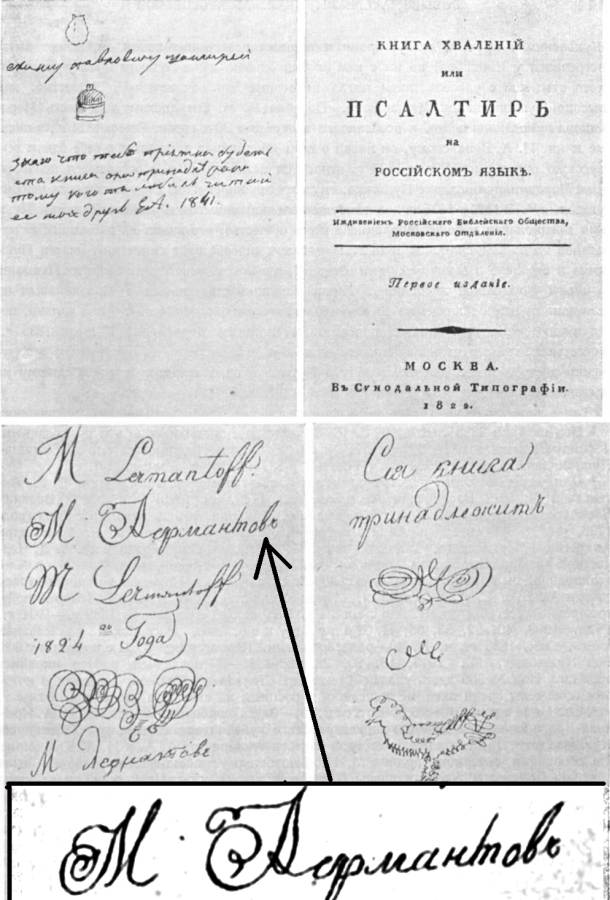 знаю что тебѣ прiятна будетъ
эта книга она принадлежала
тому кого ты любилъ читай
ее мой другъ Е.А. 1841.
КНИГА ХВАЛЕНІЙ
или
ПСАЛТИРЬ
на
РОССІЙСКОМЪ ЯЗЫКѢ.
Иждивеніемъ Россійскаго Библейскаго Общества,
Московскаго Отдѣленія.
Первое изданіе.
МОСКВА.
Въ Сѵнодальной Типографіи.
1822.
M Lermantoff.
М Лермантовъ
M Lermantoff
1824 го Года
М Лермантовъ
Сія книга
принадлежитъ
М. Лермантовъ